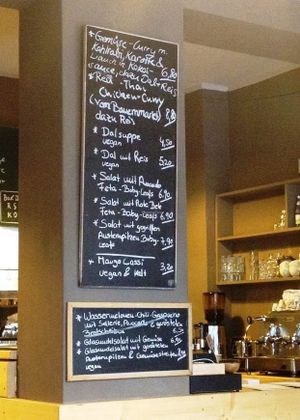 * Gemüse-Curry m.
Kohlrabi, Karotte &
Lauch in Kokos-
sauce, dazu Dal+Reis 6,80
* Red-Thai
Chicken-Curry
(vom Bauernmarkt) 8,80
dazu Reis
* Dalsuppe 4,50
vegan
* Dal mit Reis 5,20
vegan
* Salat mit Avocado
Feta-Baby-Leafs 6,90
* Salat mit Rote Bete
Feta-Baby-Leafs 6,90
* Salat mit gegrillten
Austernpilzen Baby-
Leafs 7,90
* Mango Lassi 3,20
vegan & kalt
* Wassermelonen-Chili-Gazpacho
mit Sellerie, Avocado & gerösteten
* Glasnudelsalat mit Gemüse
* Glasnudelsalat mit gerösteten
Austernpilzen & Gemüsestreifen
vegan